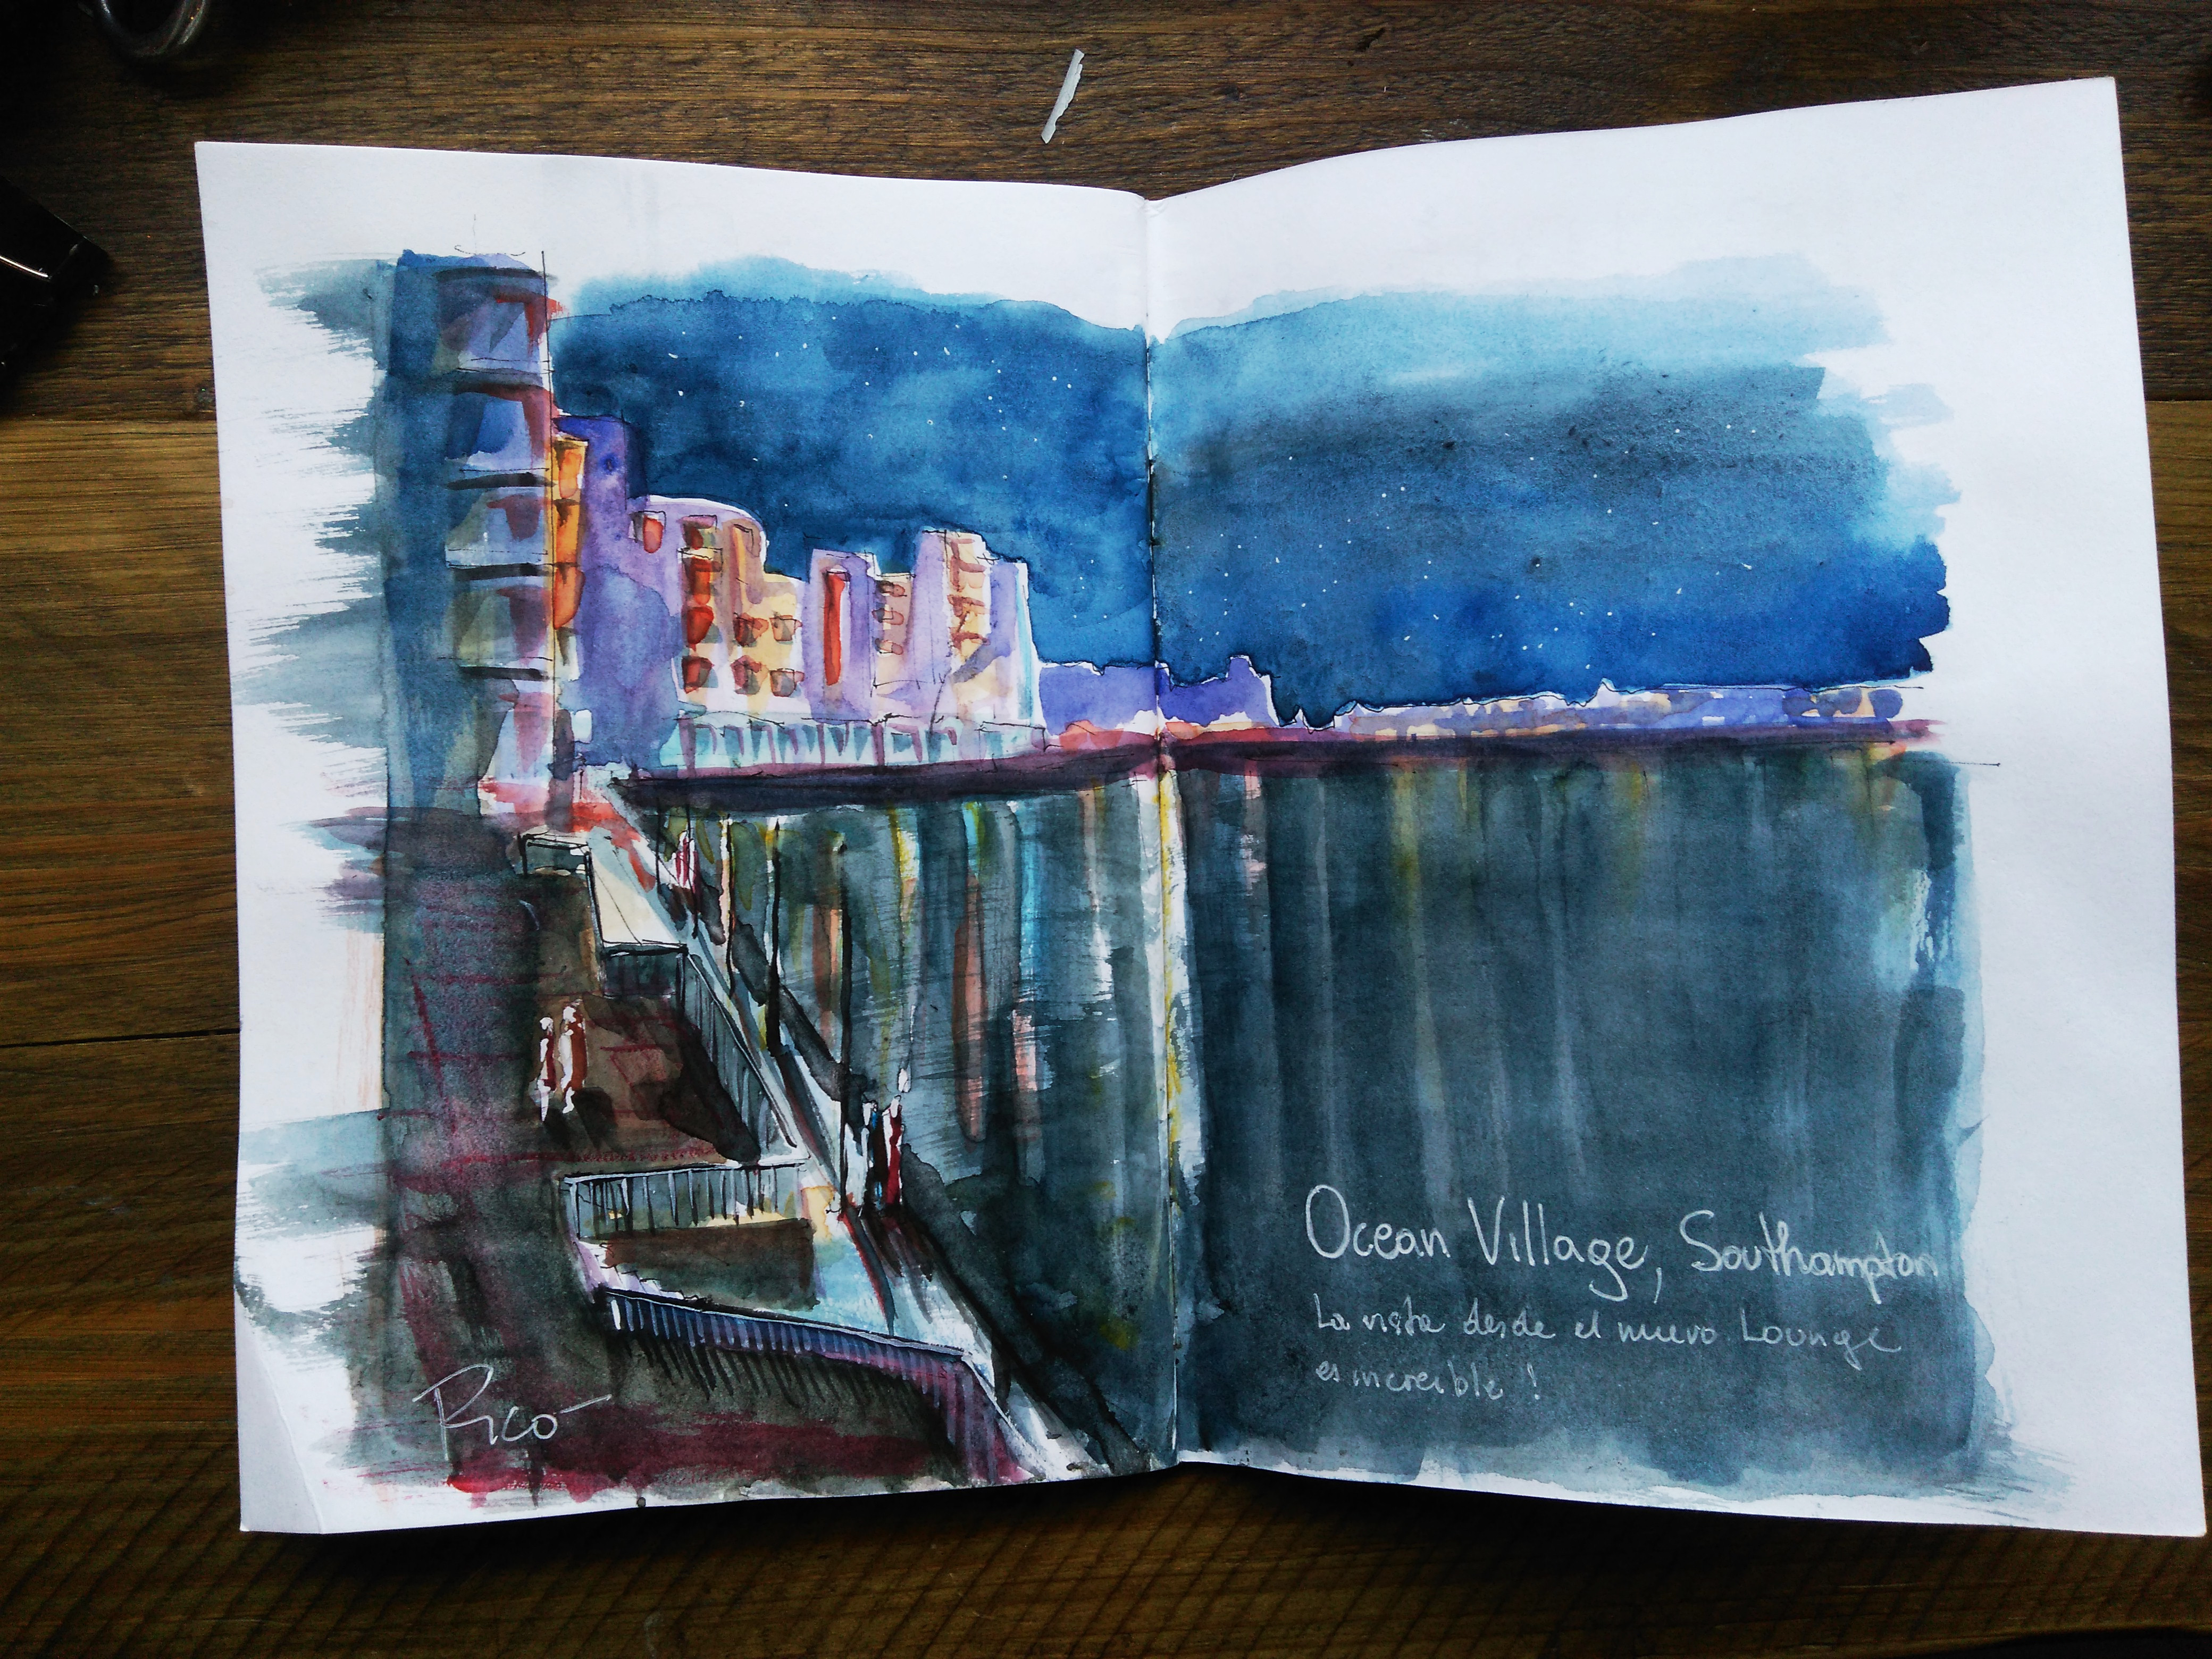 Ocean Village, Southampton
La vista desde el nuevo Lounge
es increible !
Rico